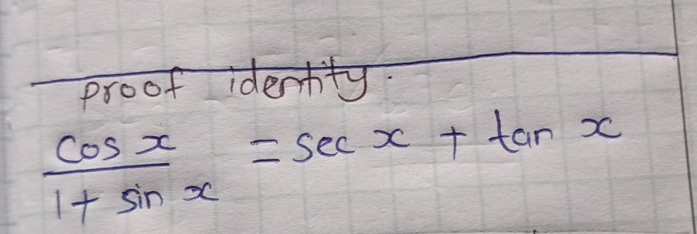 proof identity.
cos x / 1 + sin x = sec x + tan x